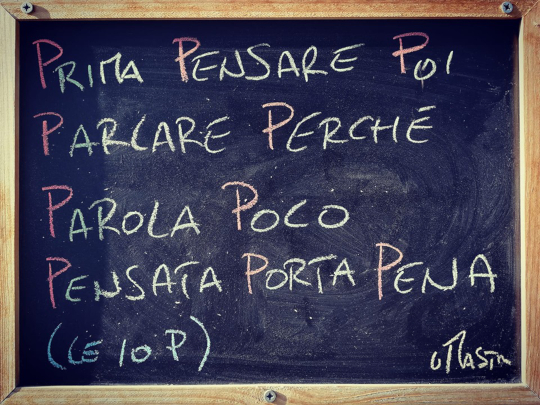 PRIMA PENSARE POI
PARLARE PERCHÉ
PAROLA POCO
PENSATA PORTA PENA
(LE 10 P)